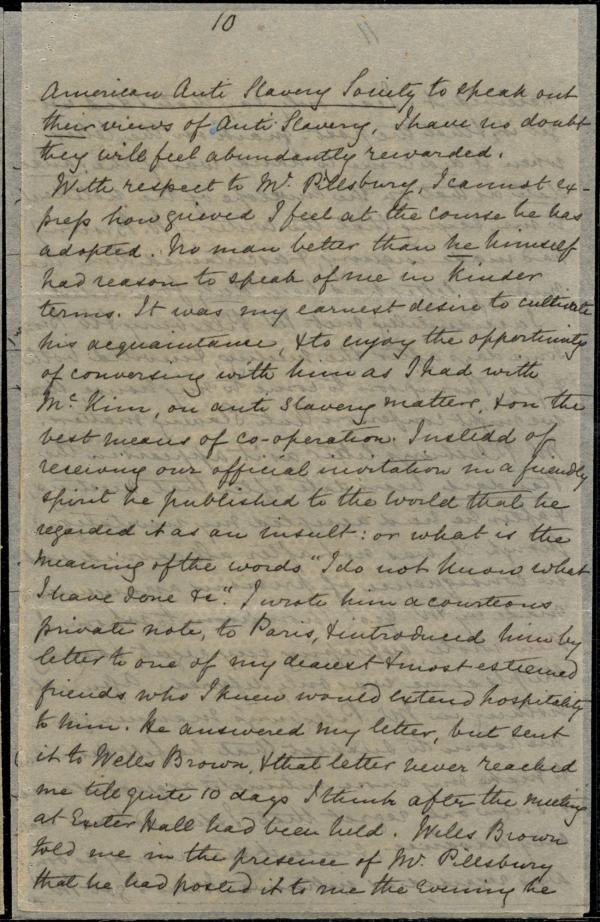 10
American Anti Slavery Society to speak out
their views of Anti Slavery, I have no doubt
they will feel abundantly rewarded.
With respect to Mr. Pillsbury, I cannot ex-
press how grieved I feel at the course he has
adopted. No man better than he himself
had reason to speak of me in kinder
terms. It was my earnest desire to cultivate
his acquaintance, & to enjoy the opportunity
of conversing with him as I had with
Mc. Kim, on anti slavery matters, & on the
best means of co-operation. Instead of
receiving our official invitation in a friendly
spirit he published to the world that he
regarded it as an insult: or what is the
meaning of the words "I do not know what
I have done &c". I wrote him a courteous
private note, to Paris, & introduced him by
letter to one of my dearest & most esteemed
friends who I knew would extend hospitality
to him. He answered my letter, but sent
it to Wells Brown, & that letter never reached
me till quite 10 days I think after the meeting
at Exeter Hall had been held. Wells Brown
told me in the presence of Mr. Pillsbury
that he had posted it to me the evening he